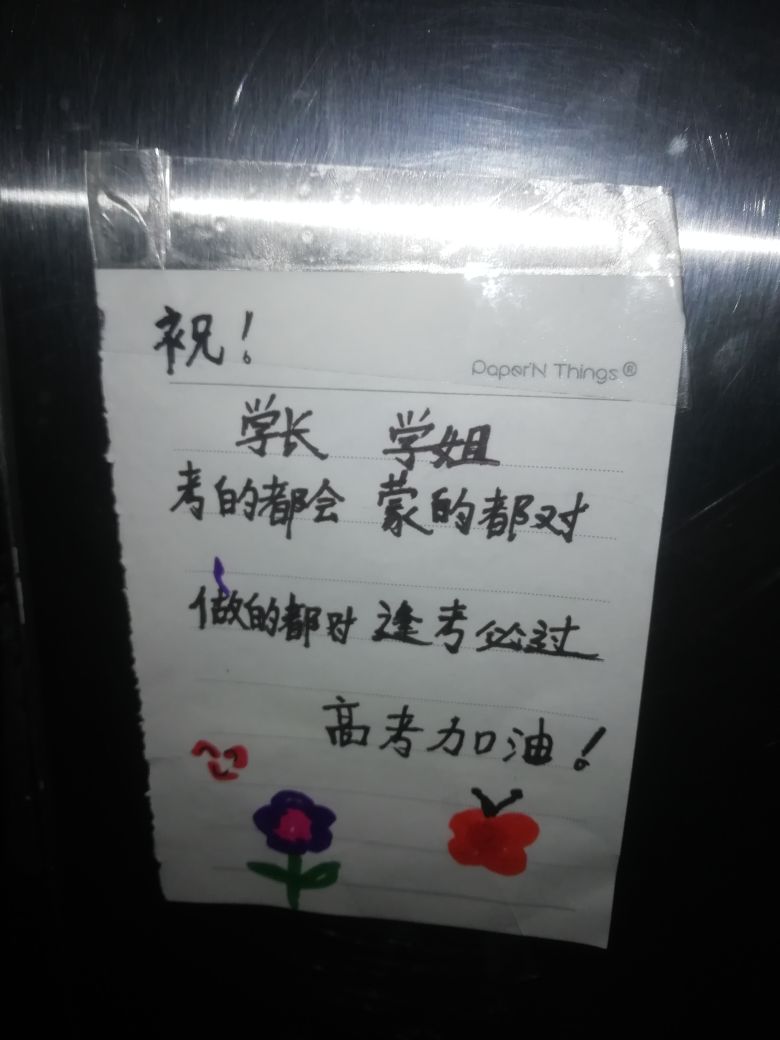 祝！
PaperN Things®
学长 学姐
考的都会 蒙的都对
做的都对 逢考必过
高考加油！